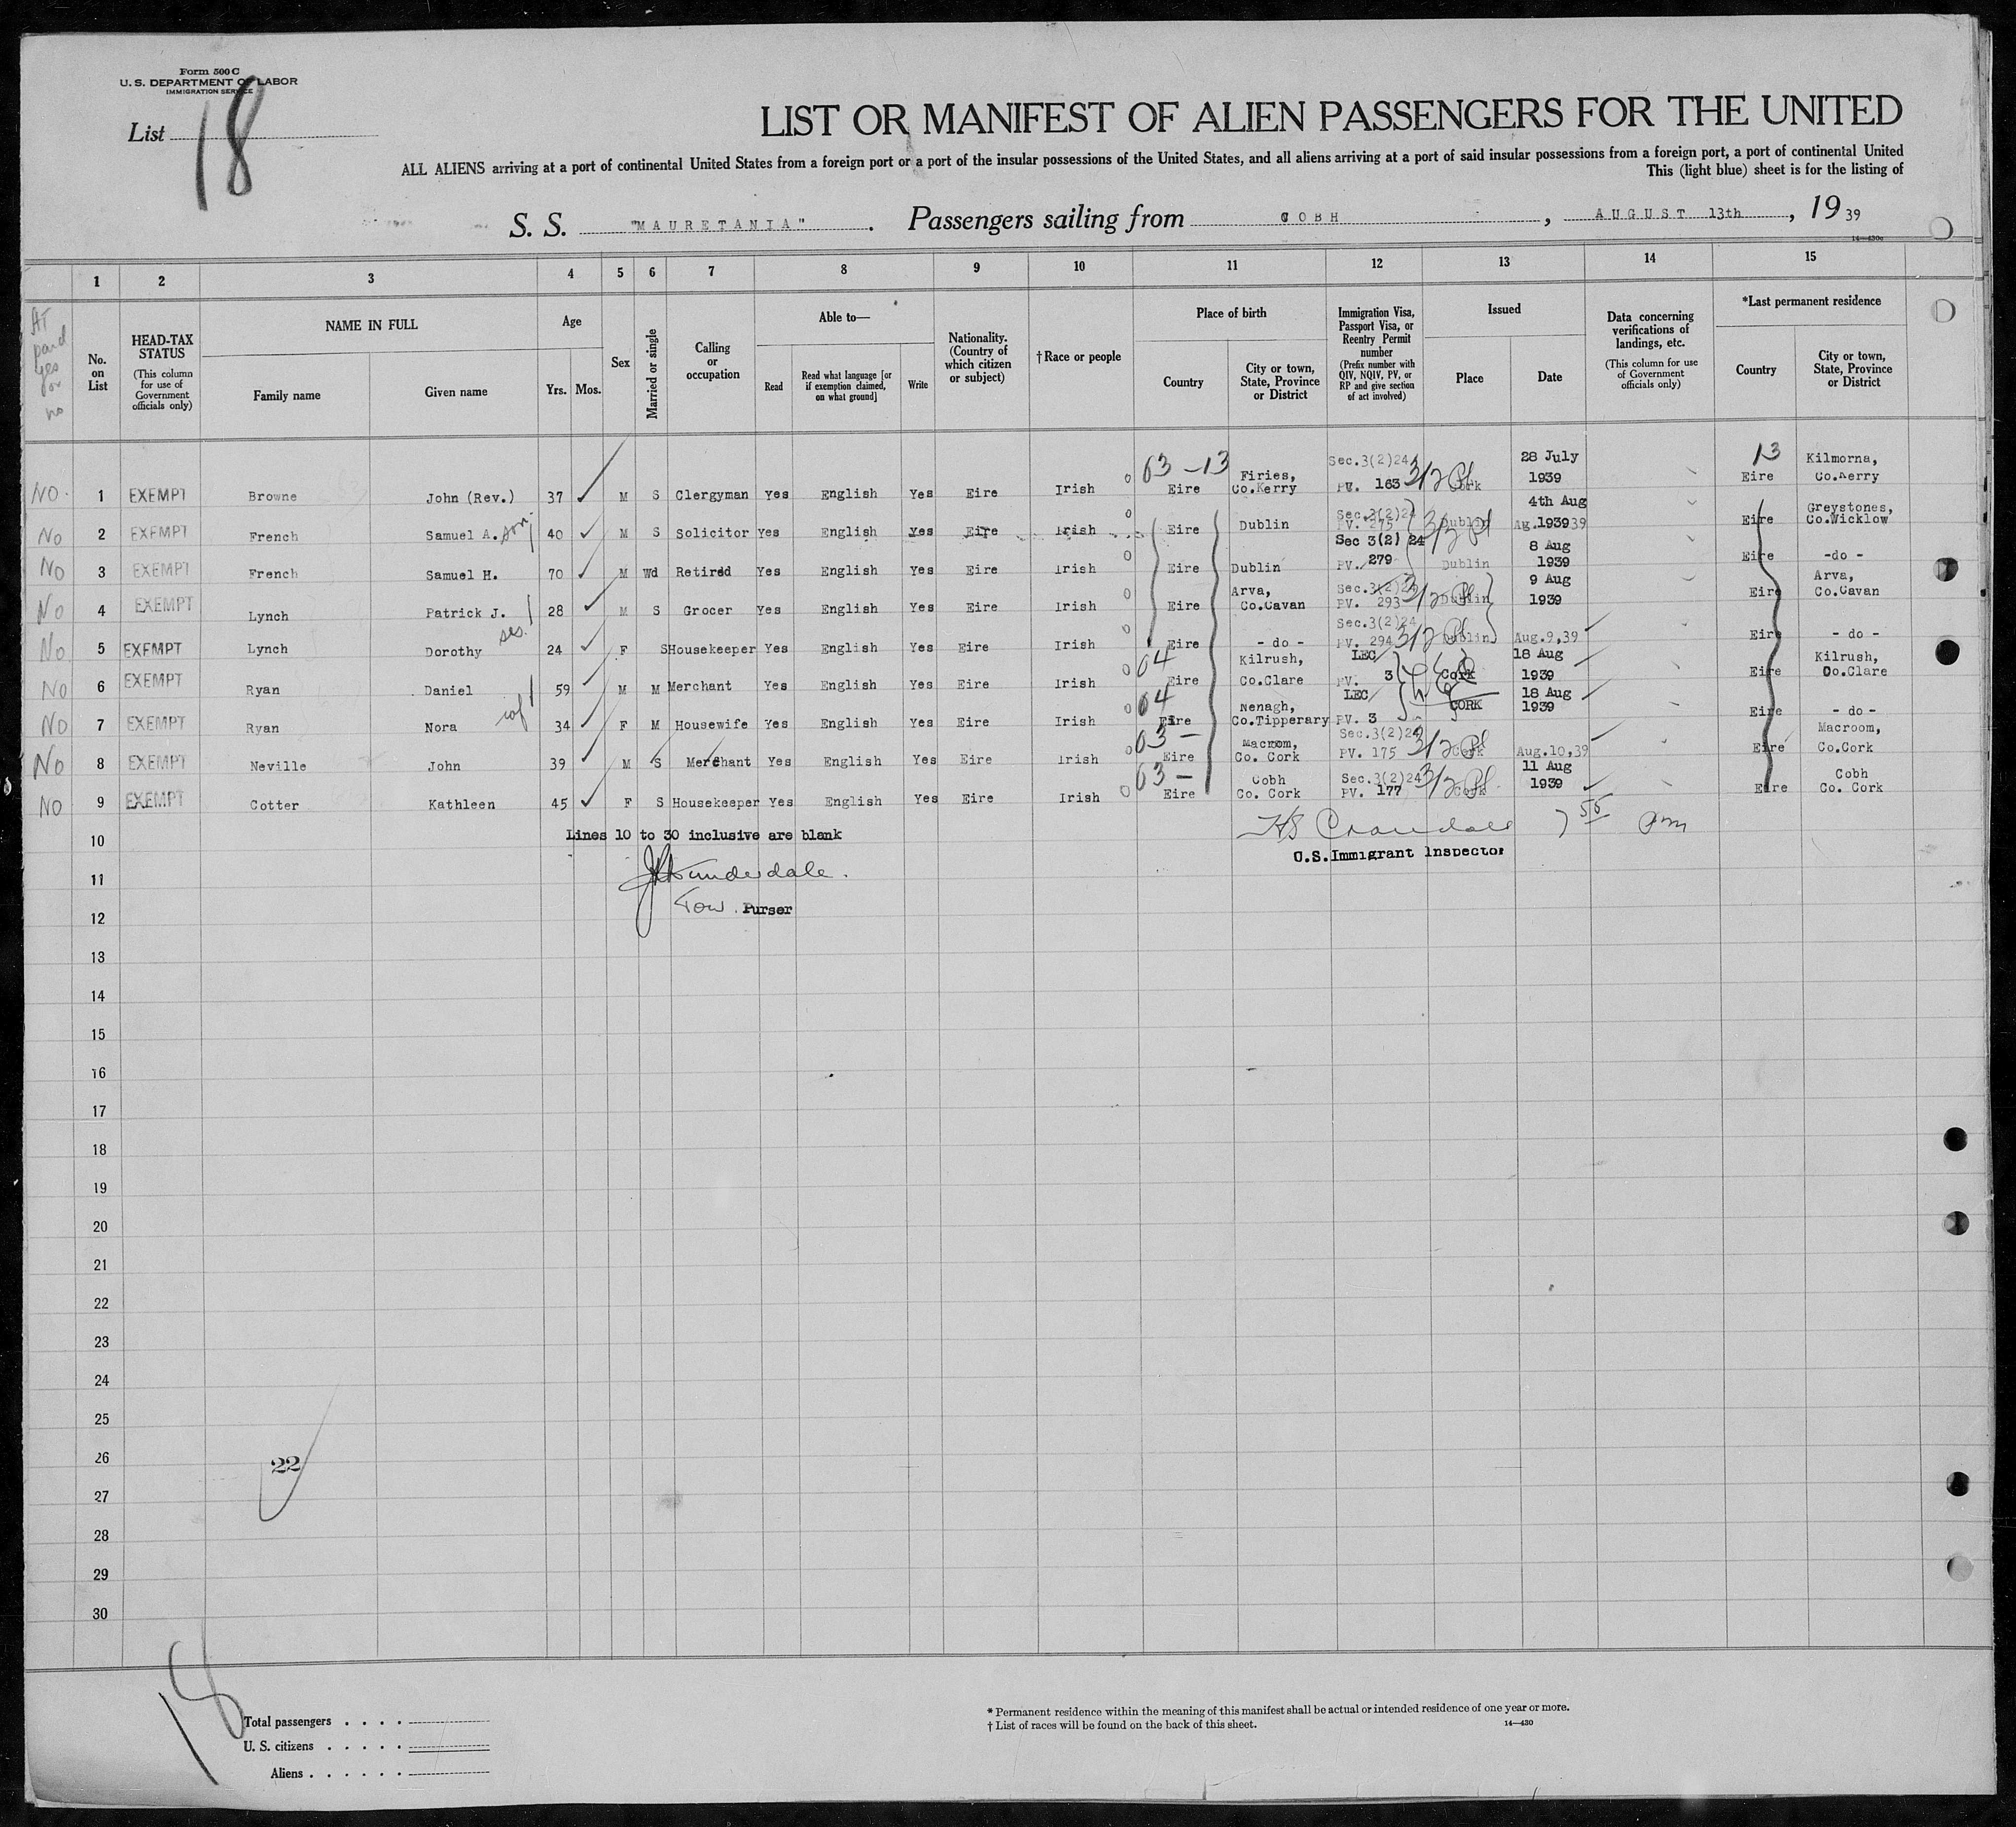 Form 500 C
U. S. DEPARTMENT OF LABOR
IMMIGRATION SERVICE
List 18
LIST OR MANIFEST OF ALIEN PASSENGERS FOR THE UNITED
ALL ALIENS arriving at a port of continental United States from a foreign port or a port of the insular possessions of the United States, and all aliens arriving at a port of said insular possessions from a foreign port, a port of continental United
This (light blue) sheet is for the listing of
S. S. "MAURETANIA". Passengers sailing from COBH, AUGUST 13th, 19 39
14—430c
1 2 3 4 5 6 7 8 9 10 11 12 13 14 15
HT paid yes or no
No. on List
HEAD-TAX STATUS (This column for use of Government officials only)
NAME IN FULL Family name Given name
Age Yrs. Mos.
Sex
Married or single
Calling or occupation
Able to— Read Read what language [or if exemption claimed, on what ground] Write
Nationality. (Country of which citizen or subject)
† Race or people
Place of birth Country City or town, State, Province or District
Immigration Visa, Passport Visa, or Reentry Permit number (Prefix number with QIV, NQIV, PV, or RP and give section of act involved)
Issued Place Date
Data concerning verifications of landings, etc. (This column for use of Government officials only)
*Last permanent residence Country City or town, State, Province or District
NO. 1 EXEMPT Browne John (Rev.) 37 M S Clergyman Yes English Yes Eire Irish 0 03-13 Eire Firies, Co.Kerry Sec.3(2)24 PV. 163 3/2 Cork 28 July 1939 13 Eire Kilmorna, Co.Kerry
No 2 EXEMPT French Samuel A. son 40 M S Solicitor Yes English Yes Eire Irish 0 Eire Dublin Sec.3(2)24 PV. 275 3/2 Dublin 4th Aug 1939 Eire Greystones, Co.Wicklow
No 3 EXEMPT French Samuel H. 70 M Wd Retired Yes English Yes Eire Irish 0 Eire Dublin Sec 3(2) 24 PV. 279 Dublin 8 Aug 1939 Eire -do -
No 4 EXEMPT Lynch Patrick J. 28 M S Grocer Yes English Yes Eire Irish 0 Eire Arva, Co.Cavan Sec.3(2)24 PV. 293 3/2 Dublin 9 Aug 1939 Eire Arva, Co.Cavan
No 5 EXEMPT Lynch Dorothy sis. 24 F S Housekeeper Yes English Yes Eire Irish 0 Eire - do - Sec.3(2)24 PV. 294 3/2 Dublin Aug.9,39 Eire - do -
No 6 EXEMPT Ryan Daniel 59 M M Merchant Yes English Yes Eire Irish 0 04 Eire Kilrush, Co.Clare LEC PV. 3 Cork 18 Aug 1939 Eire Kilrush, Co.Clare
No 7 EXEMPT Ryan Nora wf 34 F M Housewife Yes English Yes Eire Irish 0 04 Eire Nenagh, Co.Tipperary LEC PV. 3 CORK 18 Aug 1939 Eire - do -
No 8 EXEMPT Neville John 39 M S Merchant Yes English Yes Eire Irish 0 03 — Eire Macroom, Co. Cork Sec.3(2)24 PV. 175 3/2 Cork Aug.10,39 Eire Macroom, Co.Cork
No 9 EXEMPT Cotter Kathleen 45 F S Housekeeper Yes English Yes Eire Irish 0 03 — Eire Cobh Co. Cork Sec.3(2)24 PV. 177 3/2 Cork 11 Aug 1939 Eire Cobh Co. Cork
10 Lines 10 to 30 inclusive are blank
7 55 Pm
U.S.Immigrant Inspector
11
12 Purser
13
14
15
16
17
18
19
20
21
22
23
24
25
26 22
27
28
29
30
18
Total passengers
U. S. citizens
Aliens
* Permanent residence within the meaning of this manifest shall be actual or intended residence of one year or more.
† List of races will be found on the back of this sheet.
14—430